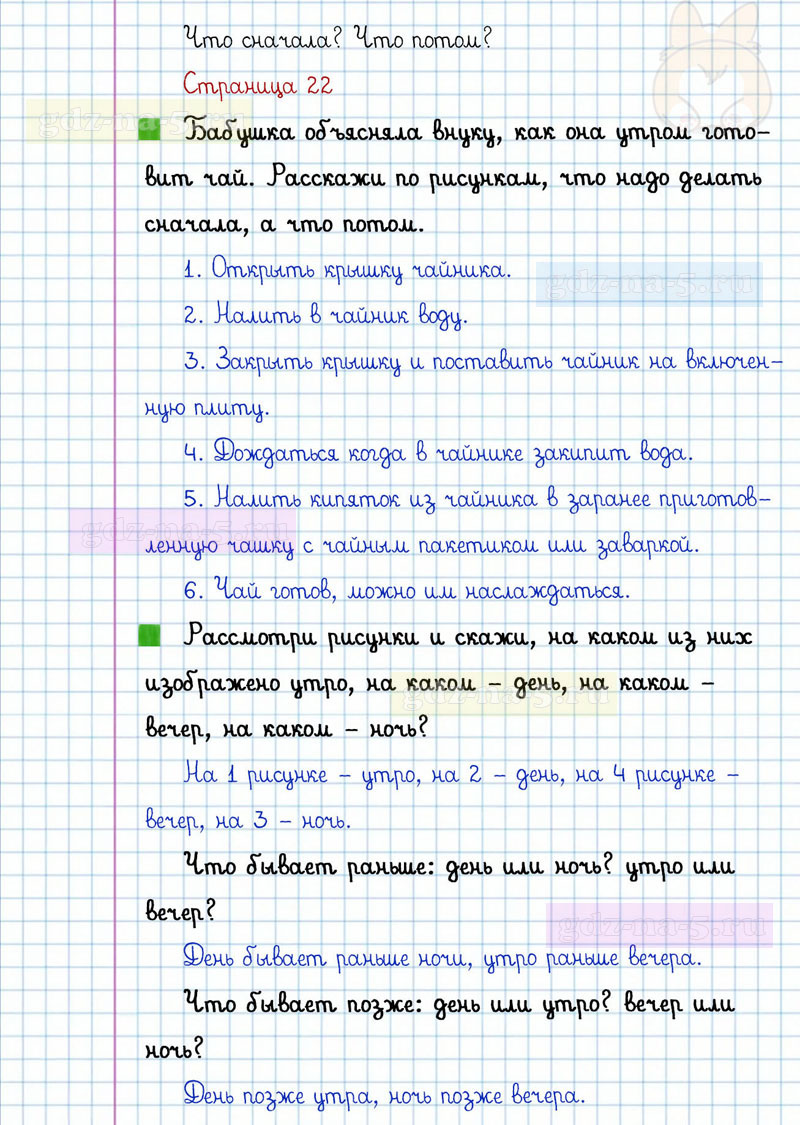 Что сначала? Что потом?
Страница 22
gdz-na-5.ru
Бабушка объясняла внуку, как она утром гото-
вит чай. Расскажи по рисункам, что надо делать
сначала, а что потом.
1. Открыть крышку чайника.
gdz-na-5.ru
2. Налить в чайник воду.
3. Закрыть крышку и поставить чайник на включен-
ную плиту.
4. Дождаться когда в чайнике закипит вода.
5. Налить кипяток из чайника в заранее приготов-
gdz-na-5.ru
ленную чашку с чайным пакетиком или заваркой.
6. Чай готов, можно им наслаждаться.
Рассмотри рисунки и скажи, на каком из них
изображено утро, на каком – день, на каком –
gdz-na-5.ru
вечер, на каком – ночь?
На 1 рисунке – утро, на 2 – день, на 4 рисунке –
вечер, на 3 – ночь.
Что бывает раньше: день или ночь? утро или
вечер?
gdz-na-5.ru
День бывает раньше ночи, утро раньше вечера.
Что бывает позже: день или утро? вечер или
ночь?
День позже утра, ночь позже вечера.